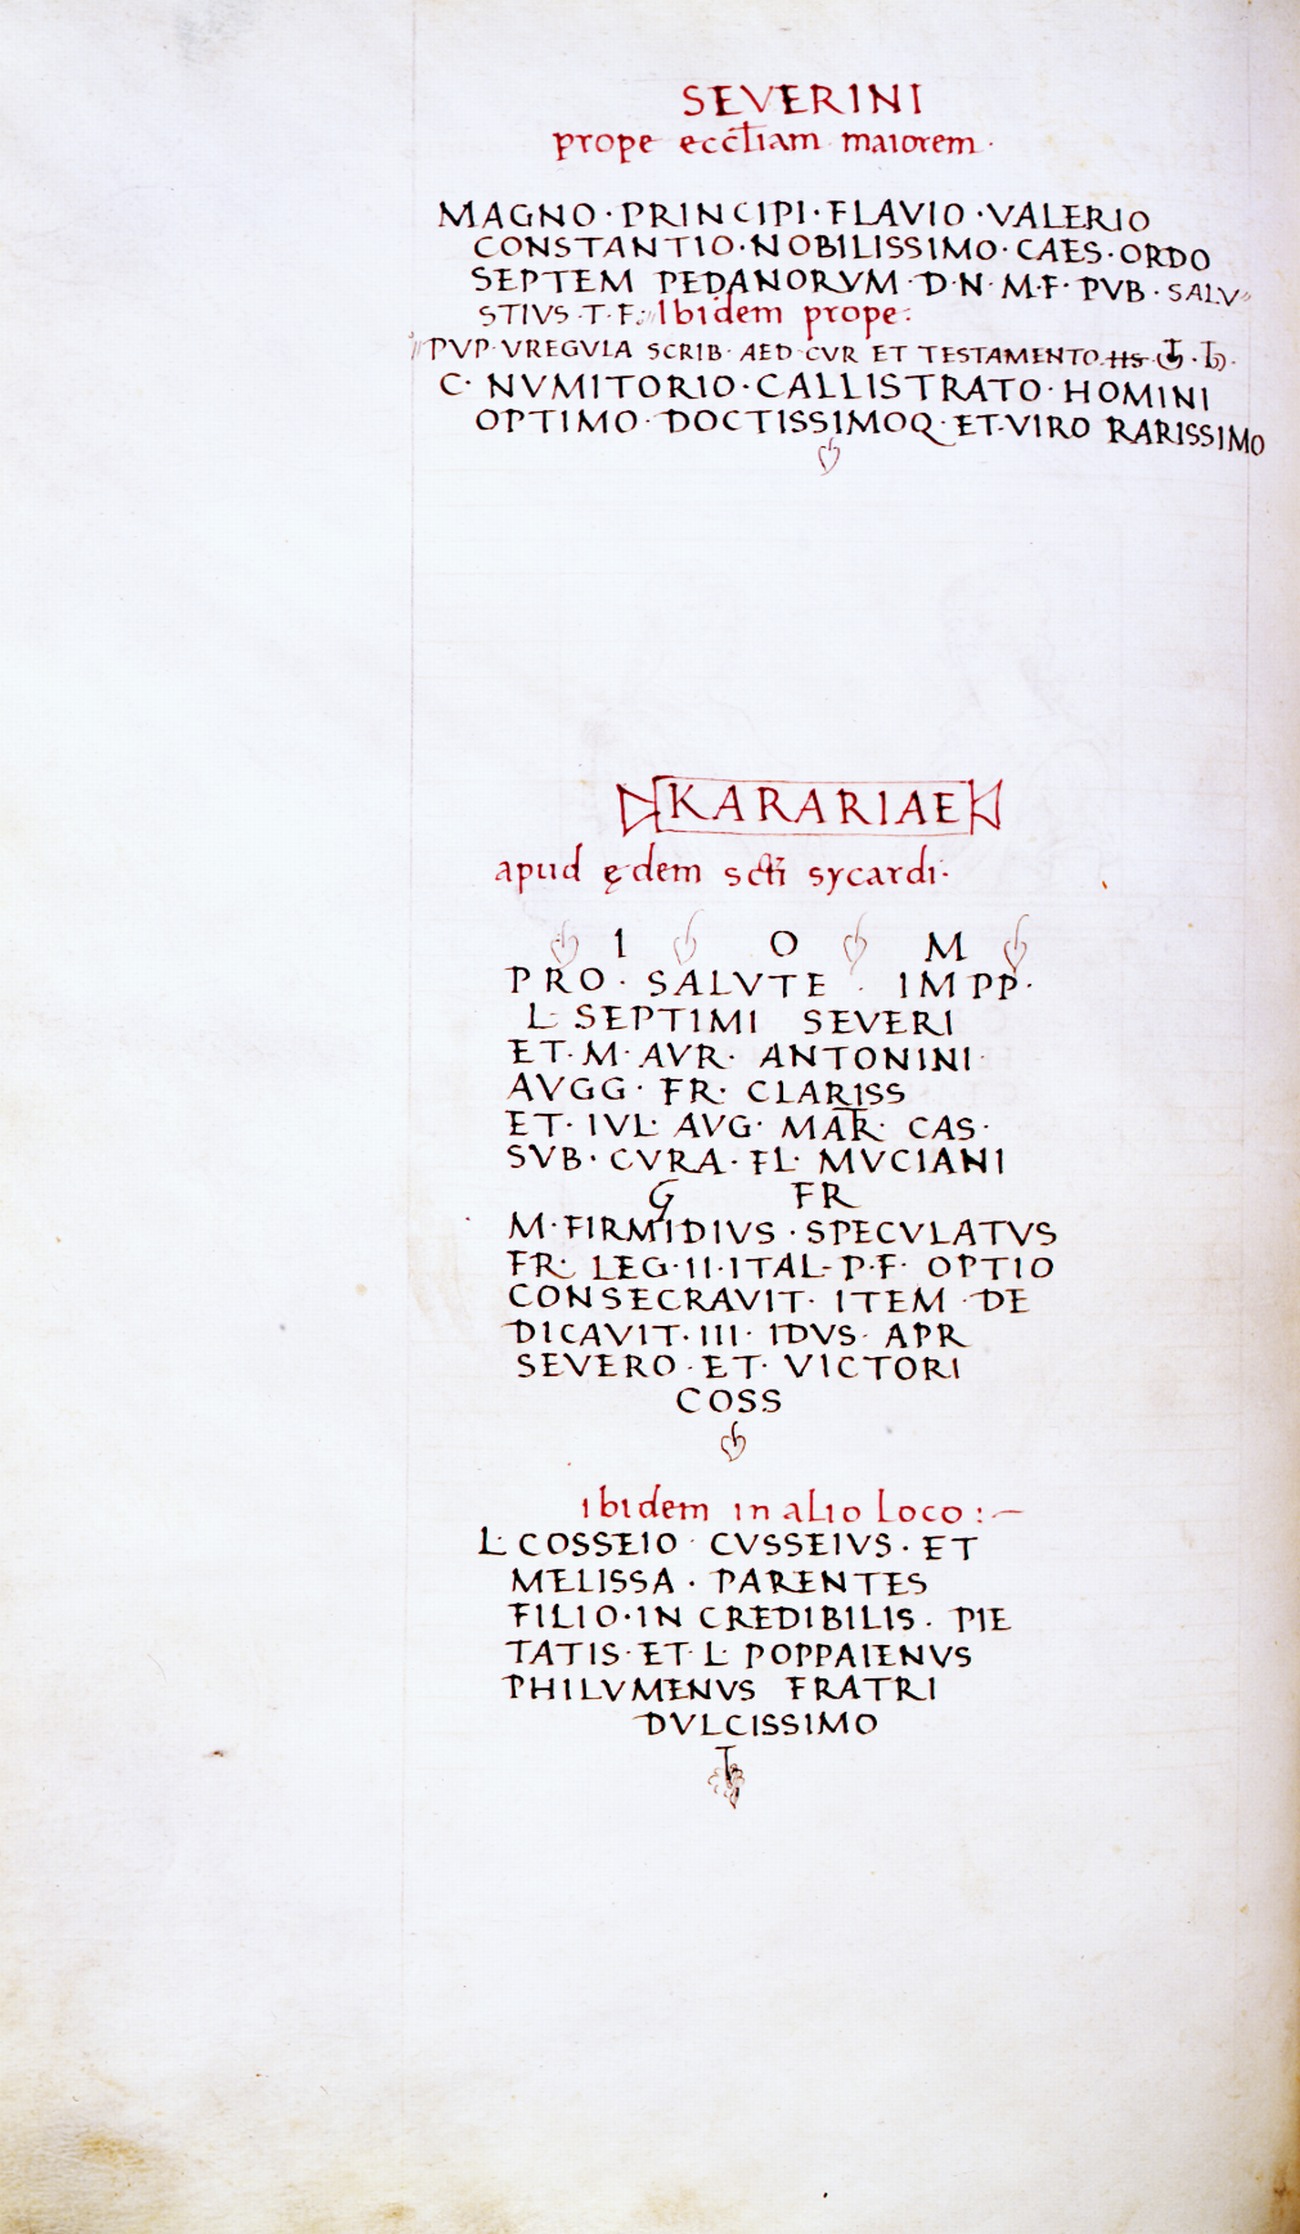 SEVERINI
prope eccl̄iam maiorem ·
MAGNO · PRINCIPI · FLAVIO · VALERIO
CONSTANTIO · NOBILISSIMO · CAES · ORDO
SEPTEM PEDANORVM · D · N · M · F · PVB · SALV
STIVS · T · F : Ibidem prope :
PVP · VREGVLA SCRIB · AED · CVR ET TESTAMENTO
C · NVMITORIO · CALLISTRATO · HOMINI
OPTIMO · DOCTISSIMOQ · ET · VIRO RARISSIMO
KARARIAE
apud ędem sc̄ti sycardi ·
I O M
PRO · SALVTE · IMPP ·
L · SEPTIMI SEVERI
ET · M · AVR · ANTONINI ·
AVGG · FR · CLARISS
ET · IVL · AVG · MAT̄R · CAS ·
SVB · CVRA · FL · MVCIANI
G FR
M · FIRMIDIVS · SPECVLATVS
FR · LEG · II · ITAL · P · F · OPTIO
CONSECRAVIT · ITEM · DE
DICAVIT · III · IDVS · APR
SEVERO · ET · VICTORI
COSS
ibidem in alio loco : —
L · COSSEIO · CVSSEIVS · ET
MELISSA · PARENTES
FILIO · IN CREDIBILIS · PIE
TATIS · ET · L · POPPAIENVS
PHILVMENVS FRATRI
DVLCISSIMO